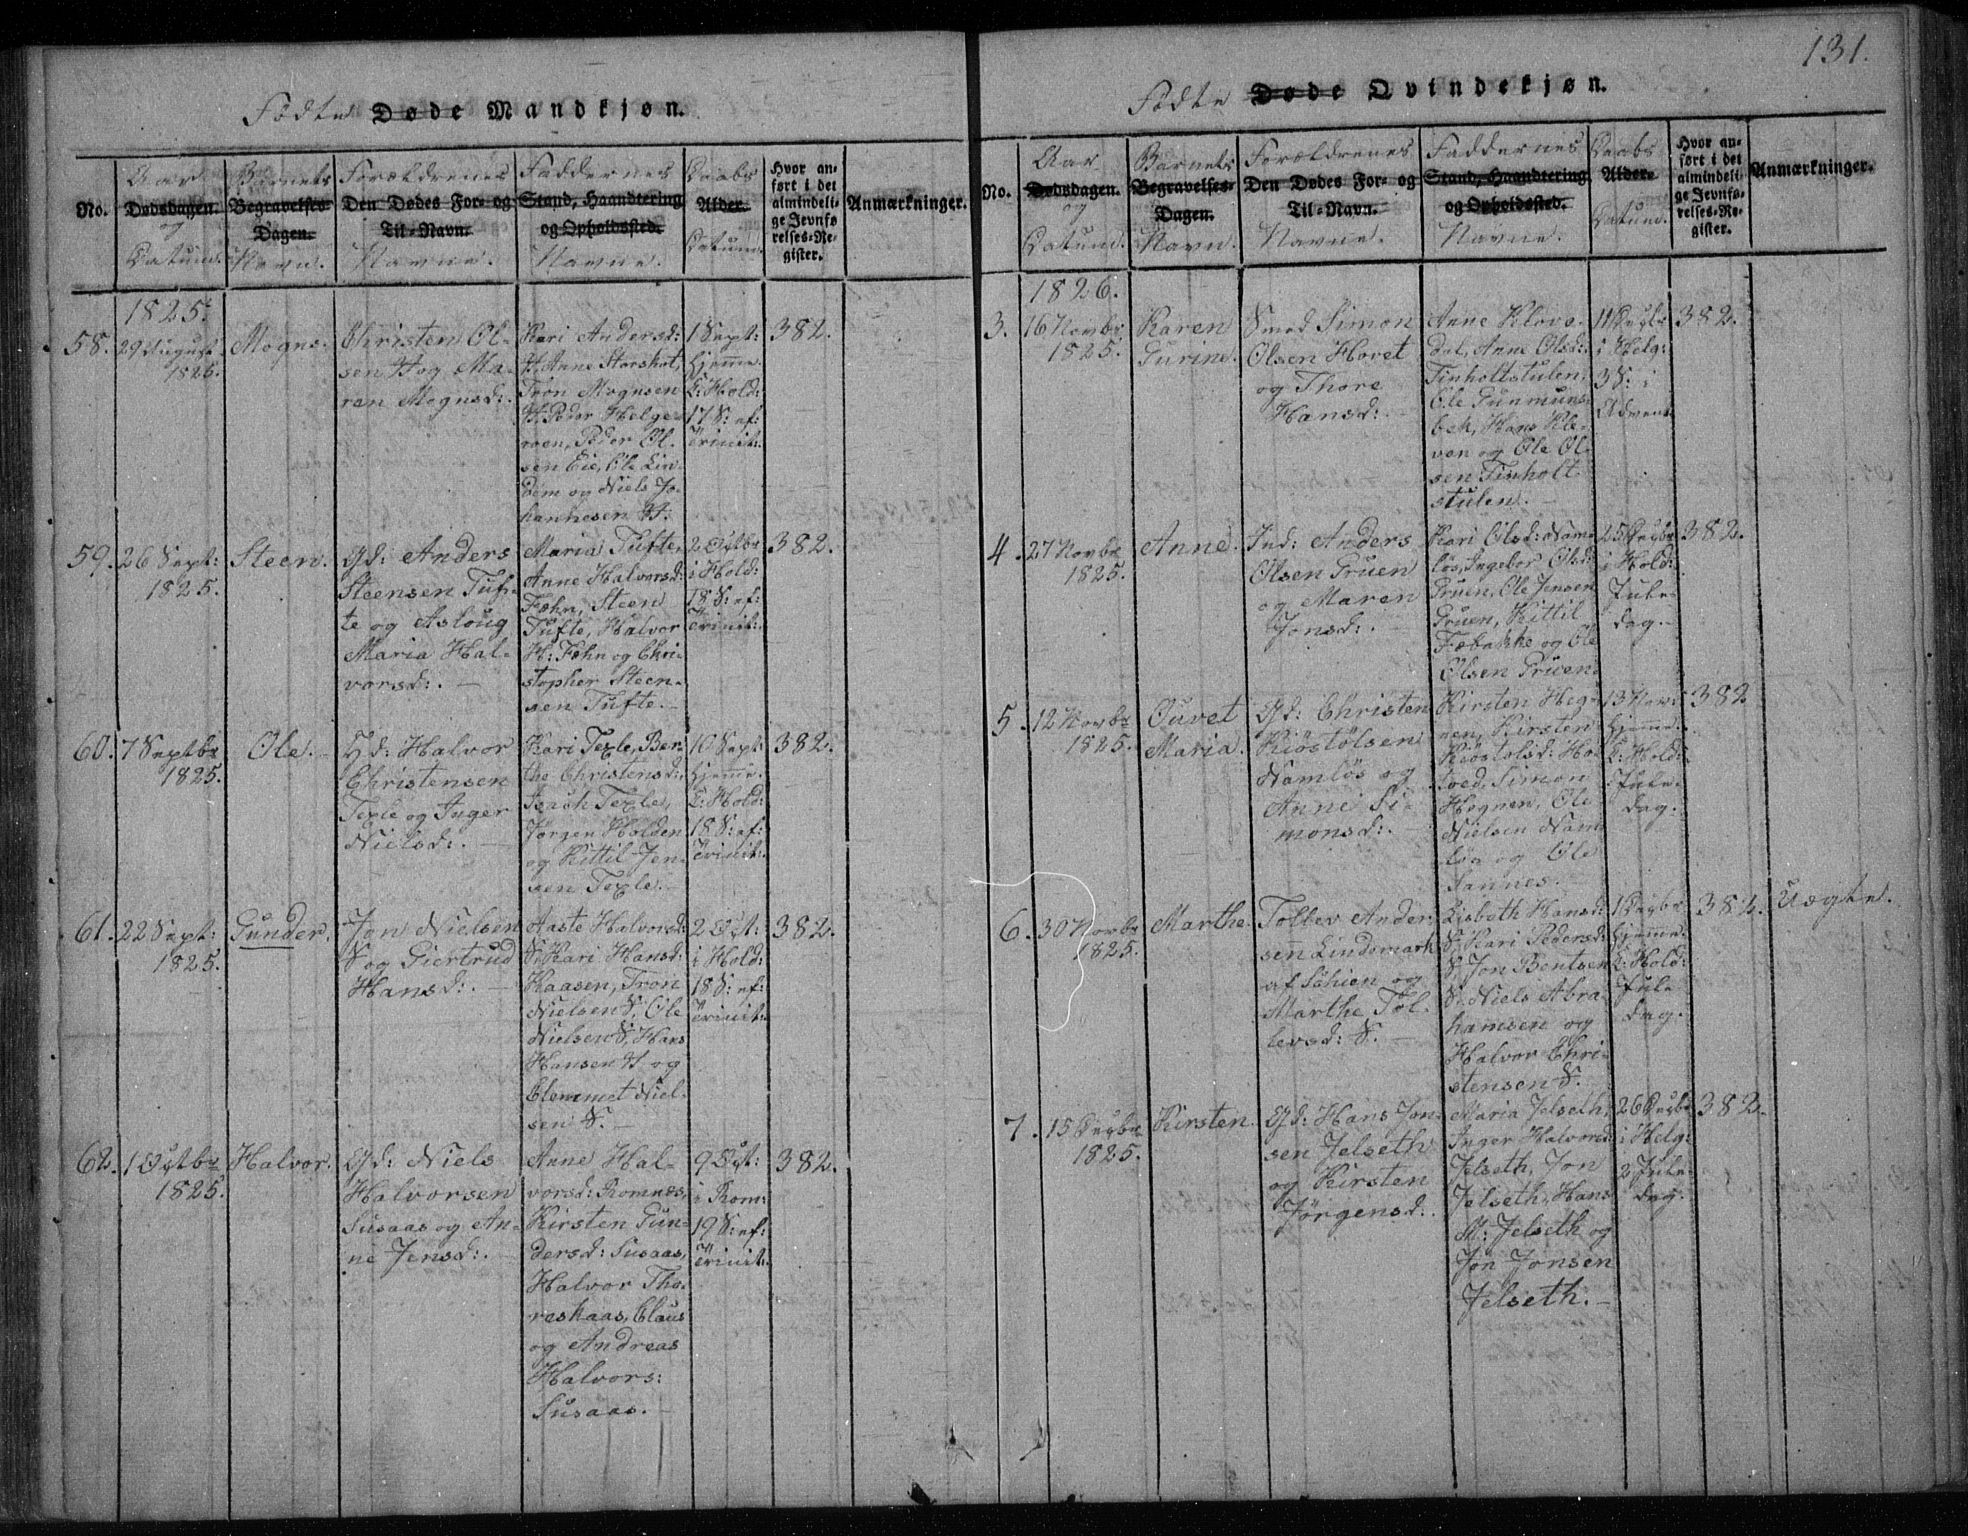 131.
Fødte Døde Mandkjøn.
No.
Aar
Dødsdagen.
og
Datum.
Barnets
Begravelses
Dagen.
Navn.
Forældrenes
Den Dødes For- og
Til-Navn.
Navne.
Faddernes
Stand, Haandtering
og Opholdssted.
Navne.
Daabs
Alder.
Datum.
Hvor an-
ført i det
almindeli-
ge Jevnfø
relses-Re-
gister.
Anmærkninger.
1825.
58.
29 August
1825.
Mogns.
Christen Ol-
sen H og Ma-
ren Mognsd:.
Kari Andersd:
H, Anne Storshot,
Tron Mognsen
H, Peder Helge-
roen, Peder Ol-
sen Eie, Ole Lin-
dem og Niels Jo-
hannesen H.
1 Sept:
hjemme.
C: Hold:
17 S: ef:
Trinit:.
382.
59.
26 Sept:
1825.
Steen.
Gd: Anders
Steensen Tuf-
te og Asloug
Maria Hal-
vorsd:. —
Maria Tufte,
Anne Halvorsd:
Fæhn, Steen
Tufte, Halvor
H: Fæhn og Chri-
stopher Steen-
sen Tufte. —
2 Octbr
i Hold:
18 S: ef:
Trinit:.
382.
60.
7 Septbr
1825.
Ole.
Hd: Halvor
Christensen
Texle og Inger
Nielsd:. —
Kari Texle, Ber-
the Christensd:,
Isach Texle,
Jørgen Holden
og Kittil Jen-
sen Texle. —
10 Sept:
hjemme.
C: Hold:
18 S: ef:
Trinit:.
382.
61.
22 Sept:
1825.
Gunder.
Jon Nielsen
S og Giertrud
Hansd:. —
Aaste Halvorsd:
S, Kari Hansd:
Kaasen, Tron
Nielsen S, Ole
Nielsen S, Hans
Hansen H og
Clemmet Niel-
sen S. —
2 Oct:
i Hold:
18 S: ef:
Trinit:.
382.
62.
1 Octbr
1825.
Halvor.
Gd: Niels
Halvorsen
Susaas og An-
ne Jensd:. —
Anne Hal-
vorsd: Romnes,
Kirsten Gun-
dersd: Susaas,
Halvor Tho-
reskaas, Claus
og Andreas
Halvors:
Susaas. —
9 Oct:
i Rom:
19 S: ef:
Trinit:.
382.
Fødte Døde Qvindekjøn.
No.
Aar
Dødsdagen.
og
Datum.
Barnets
Begravelses-
Dagen.
Navn.
Forældrenes
Den Dødes For- og
Til-Navn.
Navne.
Faddernes
Stand, Haandtering
og Opholdssted.
Navne.
Daabs
Alder.
Datum.
Hvor an-
ført i det
almindeli-
ge Jevnfø-
relses-Re-
gister.
Anmærkninger.
1826.
3.
16 Novbr
1825.
Karen
Gurine.
Smed Simon
Olsen Hovet
og Thore
Hansd:. —
Anne Klove-
dal, Anne Olsd:
Tinholtstulen,
Ole Gunmuns-
bek, Hans Kle-
ven og Ole Ol-
sen Tinholt-
stulen. —
11 Decbr
i Helg:
3 S: i
Advent.
382.
4.
27 Novbr
1825.
Anne.
Ind: Anders
Olsen Gruen
og Maren
Jonsd:. —
Kari Olsd: Nam-
løs, Ingebor Olsd:
Gruen, Ole Jensen
Gruen, Kittil
Fæbakke og Ole
Olsen Gruen.
25 Decbr
i Hold:
Jule-
dag. —
382.
5.
12 Novbr
1825.
Ouvet
Maria.
Gd: Christen
Kiøstolsen
Namløs og
Anne Si-
monsd:.
Kirsten Heg-
nen, Kirsten
Kiøstolsd: Ho-
tved, Simon
Hegnen, Ole
Nielsen Nam-
løs og Ole
Sannes. —
13 Nov:
hjemme.
C: Hold:
Jule-
dag.
382
6.
30 Novbr
1825.
Marthe.
Tollev Ander-
sen Lindemark
af Schien og
Marthe Tol-
levsd: S. —
Lisbeth Hansd:
S, Kari Pedersd:
S, Jon Bentsen
S, Niels Abra-
hamsen og
Halvor Chri-
stensen S.
1 Decbr
hjemme.
C: Hold:
Jule-
dag.
382.
Uægte.
7.
15 Decbr
1825.
Kirsten.
Gd: Hans Jon-
sen Jelseth
og Kirsten
Jørgensd:.
Maria Jelseth,
Inger Halvorsd:
Jelseth, Jon
Jelseth, Hans
M: Jelseth og
Jon Jonsen
Jelseth. —
26 Decbr
i Helg:
2 Jule-
dag.
382.